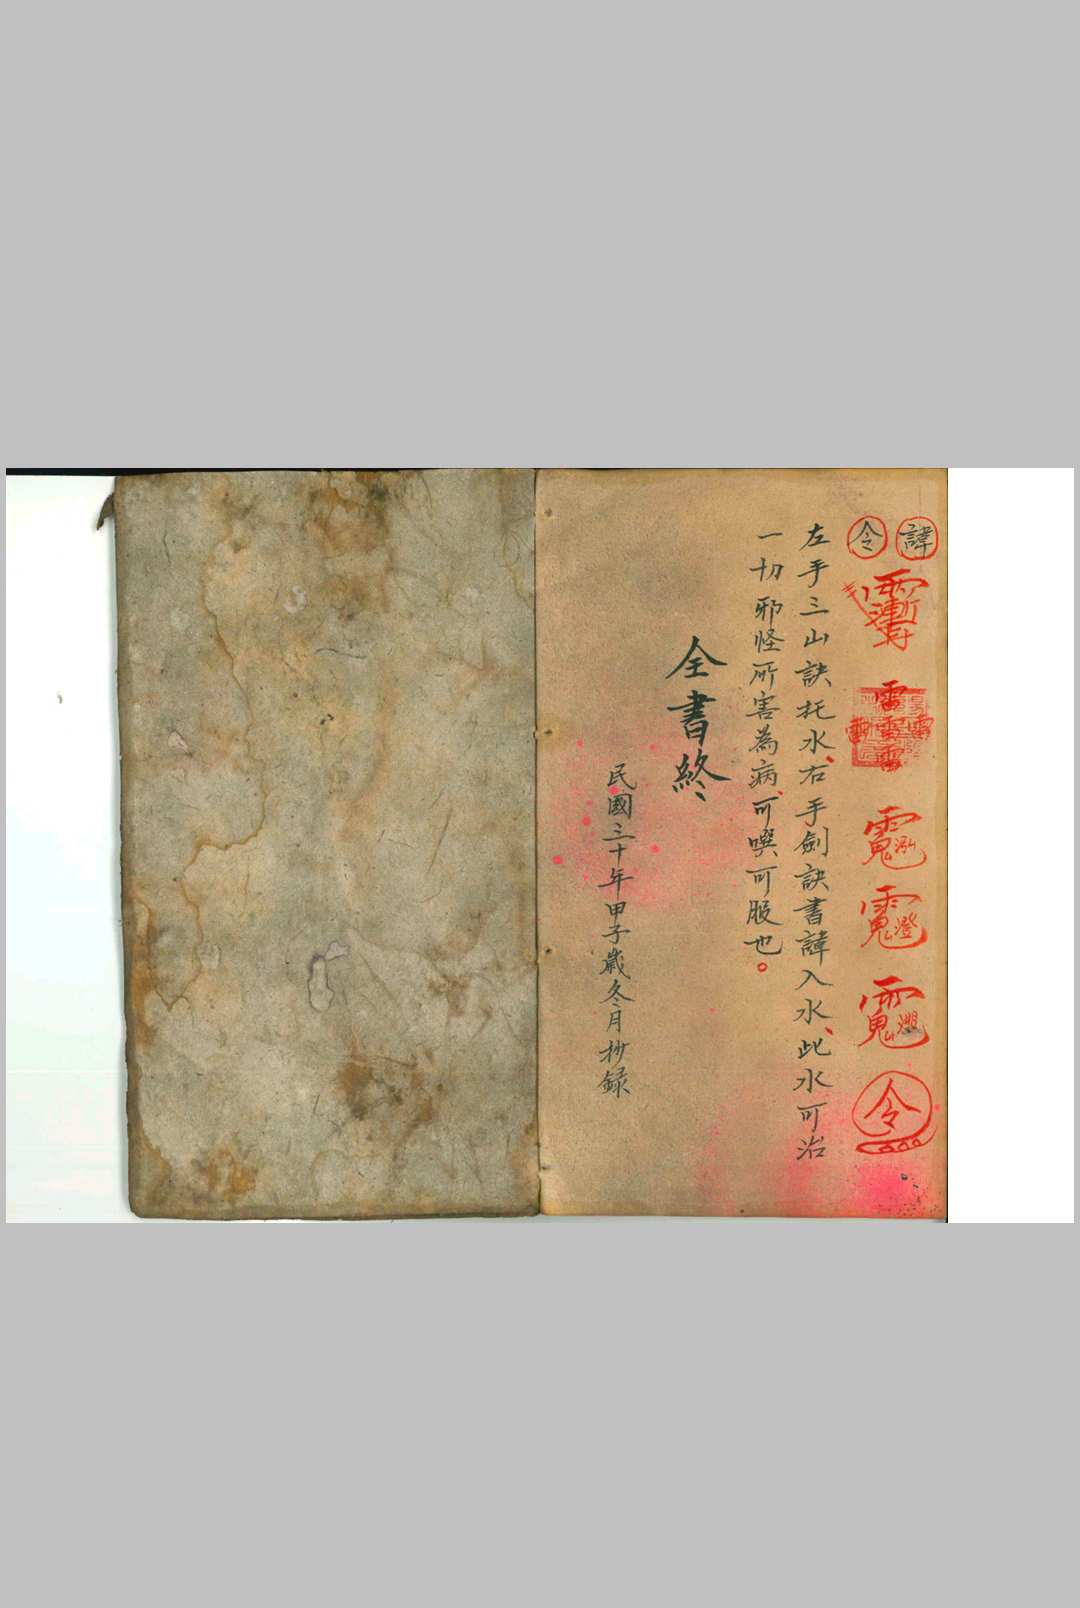 諱
令
雷雷雷
令
左手三山訣托水、右手劍訣書諱入水、此水可治
一切邪怪所害為病、可噀可服也。
全書終
民國三十年甲子歲冬月抄錄